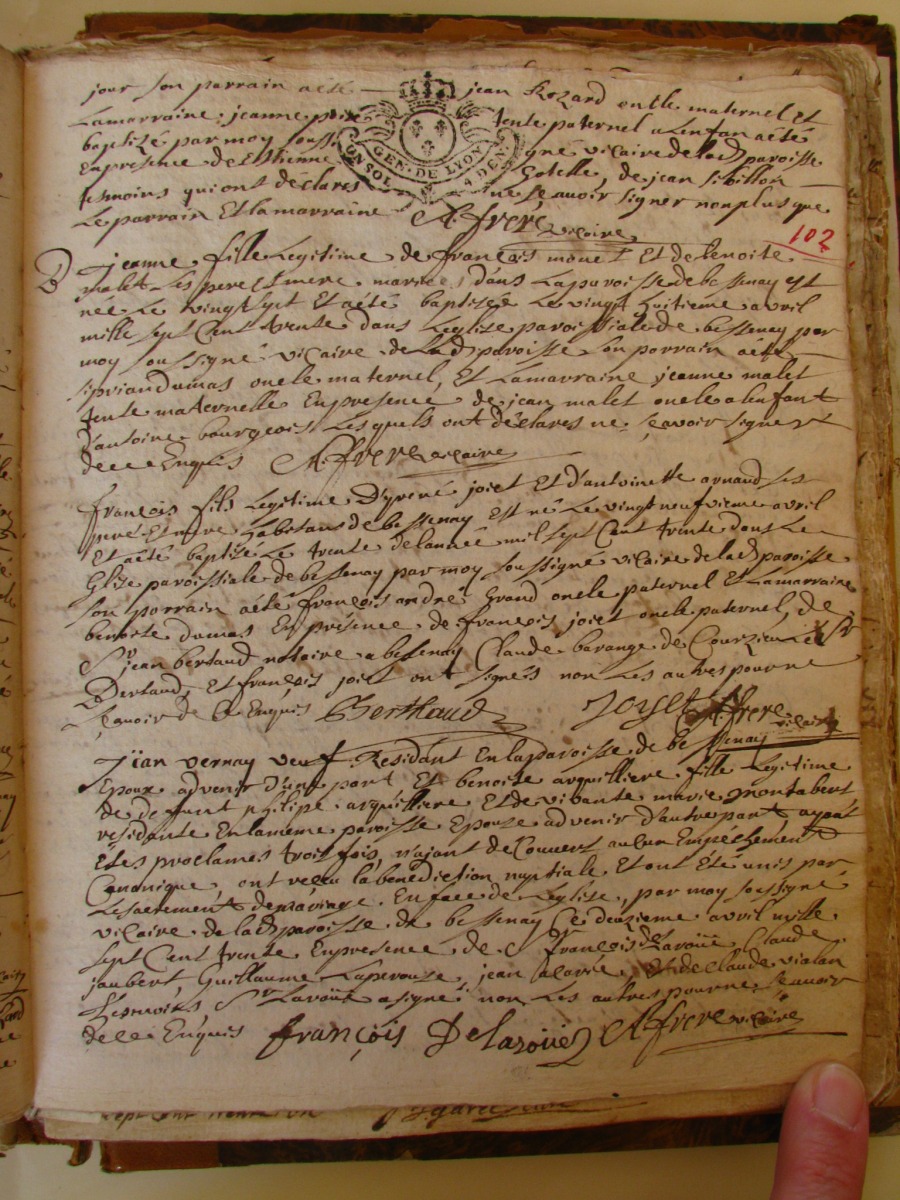 jour son parrain a été jean Rozard oncle maternel et
La marraine jeanne tente paternel a lenfan a été
baptizé par moy soussigné vicaire de lad paroisse
En presence de Estienne Gotelle, de jean sibillon
tesmoins qui ont déclares ne scavoir signer non plus que
Le parrain Et la marraine A. frere vicaire
GEN. DE LYON
UN SOL 4 DEN
102
B jeanne fille Legitime de françois mouet Et de benoite
malet ses pere Et mere mariés dans La paroisse de bessenay est
née Le vingt sept Et a été baptisée Le vingt huitieme avril
mille sept Cent trente dans Leglise paroissiale de bessenay par
moy soussigné vicaire de lad paroisse son parrain a été
siprian dumas oncle maternel, Et La marraine jeanne malet
tente maternelle En presence de jean malet oncle a lenfant
d'antoine bourgeois Lesquels ont déclares ne sçavoir signer
de ce Enquis A. frere vicaire
françois fils Legitime d'yrené joiet Et d'antoinette arnaud ses
peré Et mere habitans de bessenay Est né Le vingt neufvieme avril
Et a été baptizé Le trente de lannée mil sept Cent trente dans Le
Glise paroissiale de bessenay par moy soussigné vicaire de lad paroisse
son parrain a été françois andré grand oncle paternel Et La marraine
benoite dumas En présence de françois joiet oncle paternel, de
Sr jean bertaud notaire a bessenay Claude barange de Courzieu Le Sr
Bertaud, Et françois joiet ont signés non Les autres pour ne
sçavoir de ce Enquis Berthaud Joyet A. frere vicaire
jean vernay veuf Residant En la paroisse de bessenay
Epoux advenir d'une part Et benoite arquilliere fille Legitime
de deffunt philipe arquilliere Et de vivante marie montabert
résidante En la meme paroisse Epouze advenir d'autre part ayant
Etes proclames trois fois, n'ajant deCouvert aucun Empéchement
Canonique, ont recu la bénediction nuptiale Et ont été unis par
Le sacrement de mariage En face de Leglise, par moy soussigné
vicaire de lad paroisse de bessenay Ce deuzieme avril mille
sept Cent trente En presence de Sr françois de Laroüe Claude
jaubert, Guillaume Laperouze, jean Et de Claude vialan
Tesmoins Sr Laroüe a signé non Les autres pour ne sçavoir
de ce Enquis françois Delaroüe A. frere vicaire